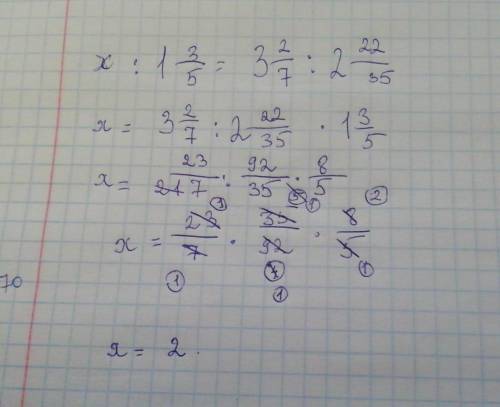 x : 1 3/5 = 3 2/7 : 2 22/35
x = 3 2/7 : 2 22/35 · 1 3/5
x = 23/7 : 92/35 · 8/5
x = 23/7 · 35/92 · 8/5
70
x = 2.